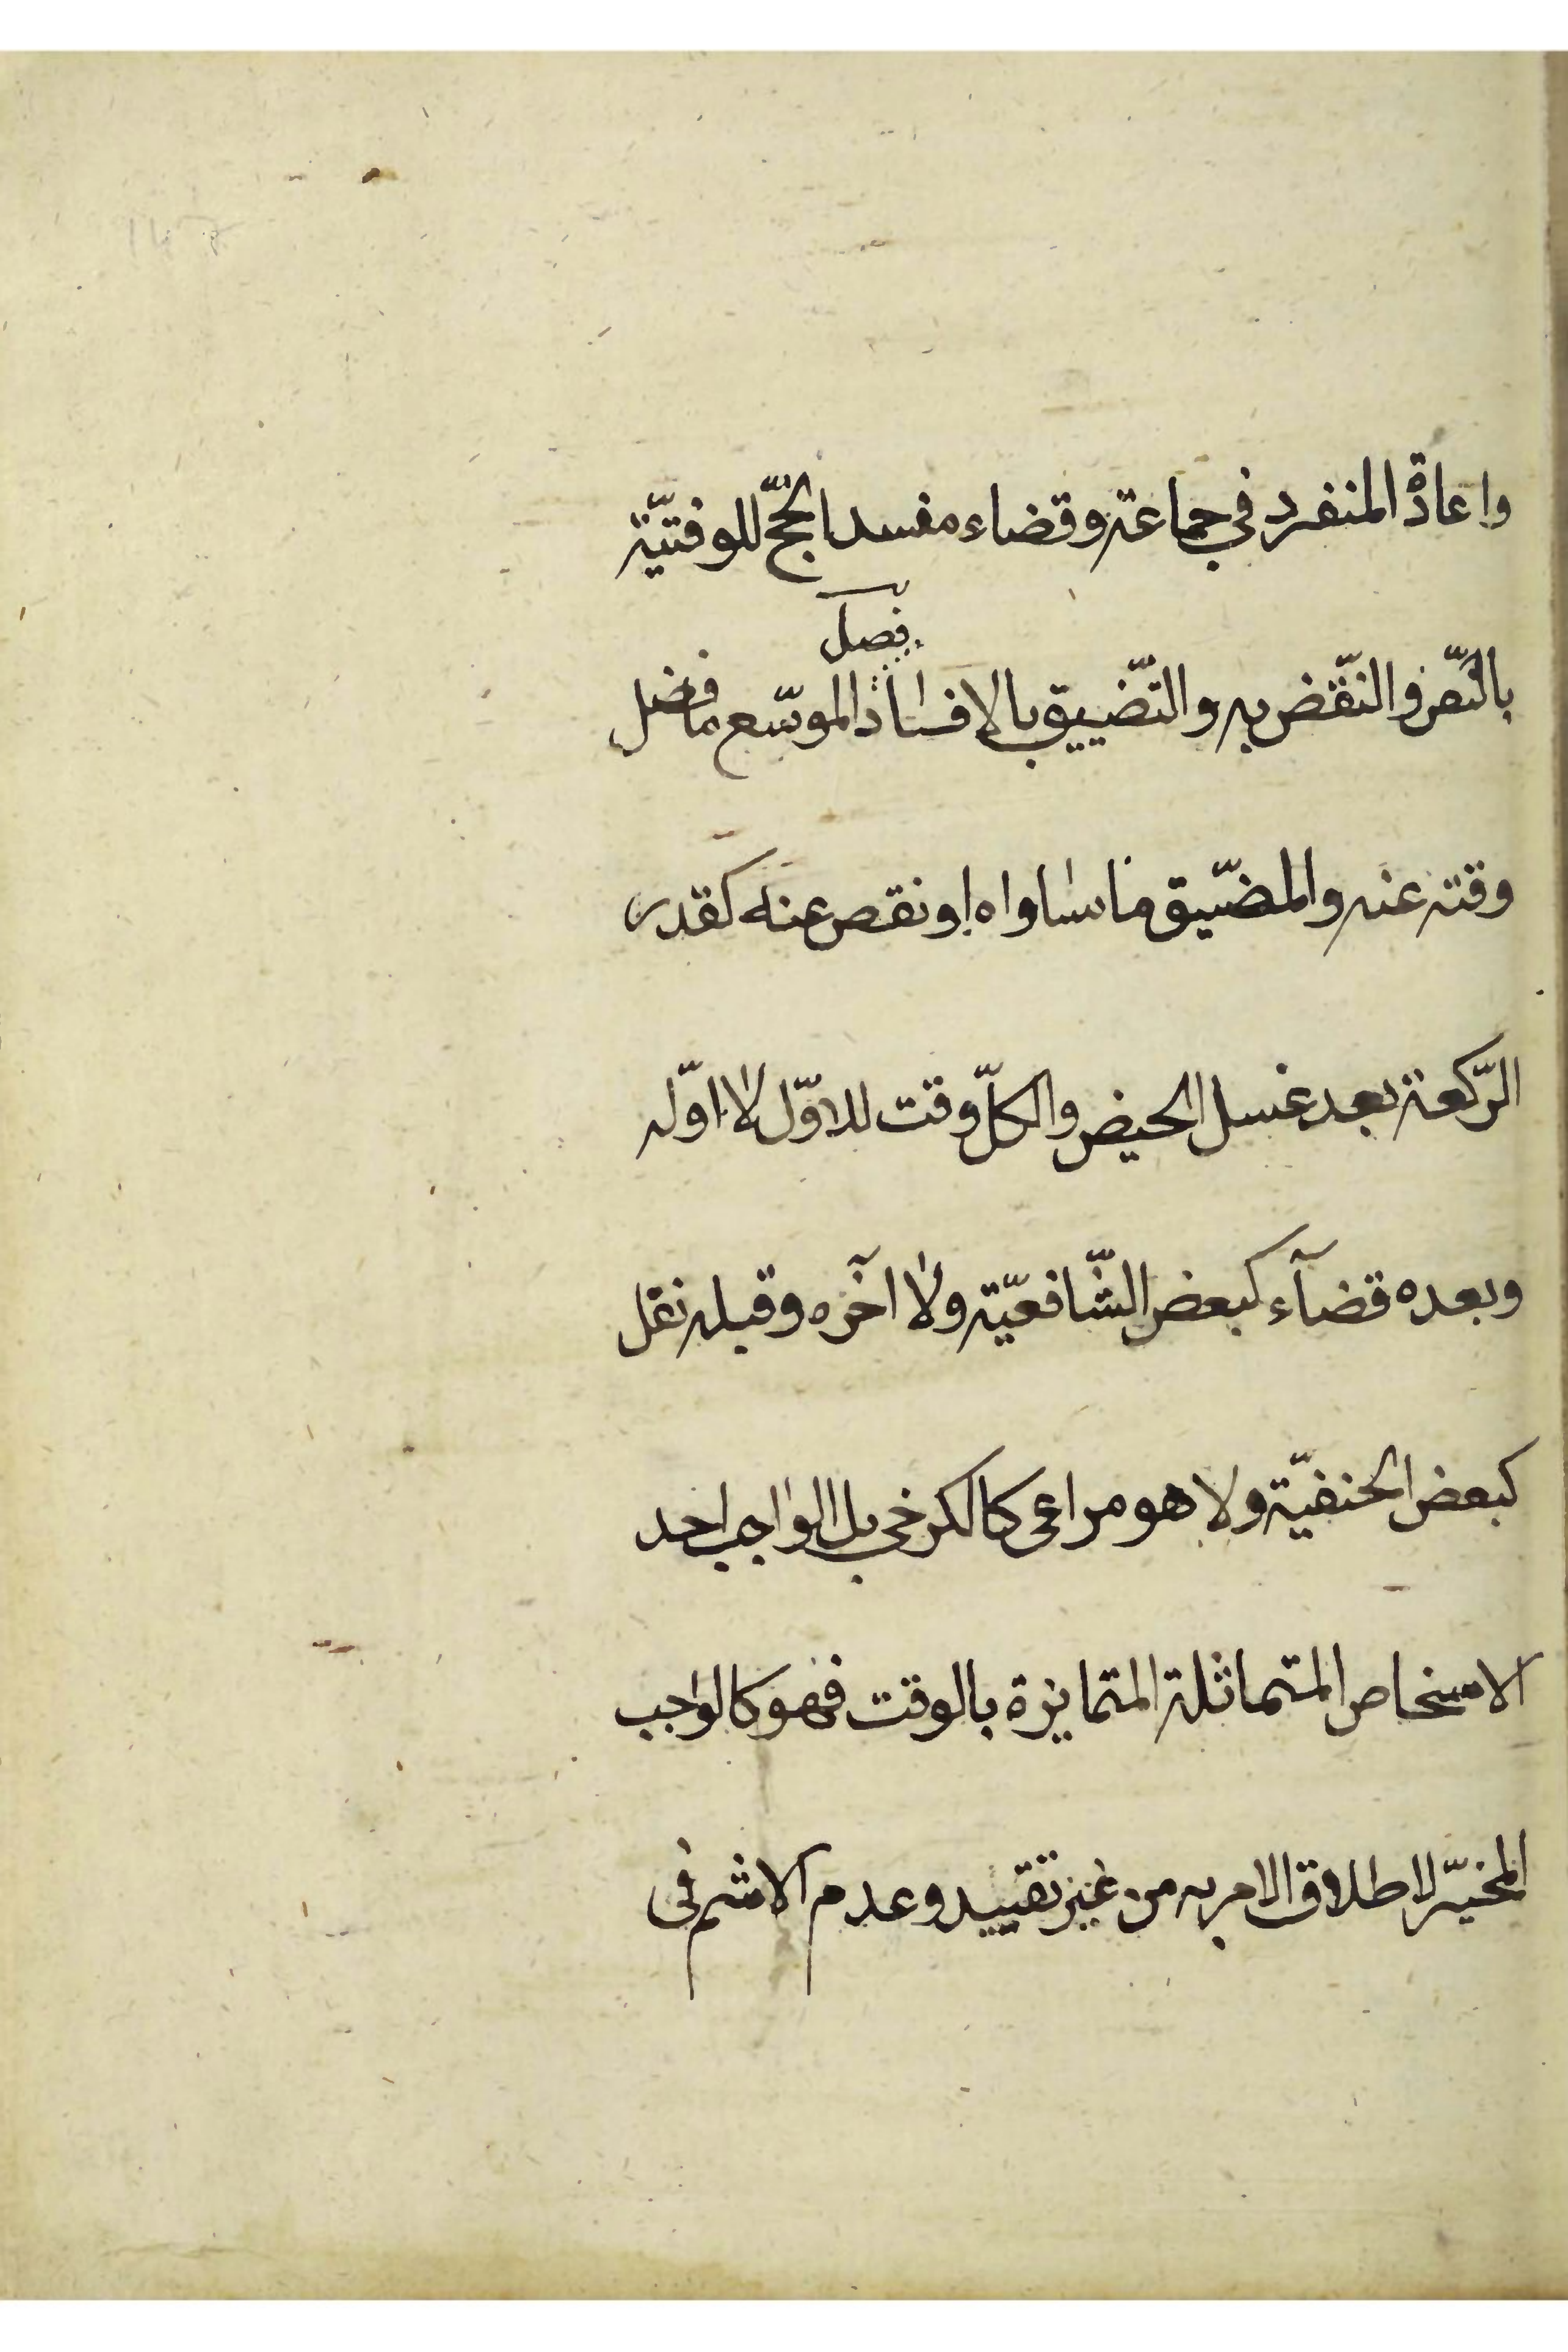 واعادة المنفرد في جماعة وقضاء مفسد الحجّ للوقتيّة
فصل
بالنّص والنّقض به والتّضييق بالافساد الموسّع ما فضل
وقته عنه والمضيّق ما ساواه او نقص عنه كقدر
الرّكعة بعد غسل الحيض والكلّ وقت للاوّل لا اوّله
وبعده قضآء كبعض الشّافعيّة ولا آخره وقبله نفل
كبعض الحنفيّة ولا هو مراعى كالكرخي بل الواجب احد
الاشخاص المتماثلة المتمايزة بالوقت فهو كالواجب
المخيّر لاطلاق الامر به من غير تقييد وعدم الاثم في